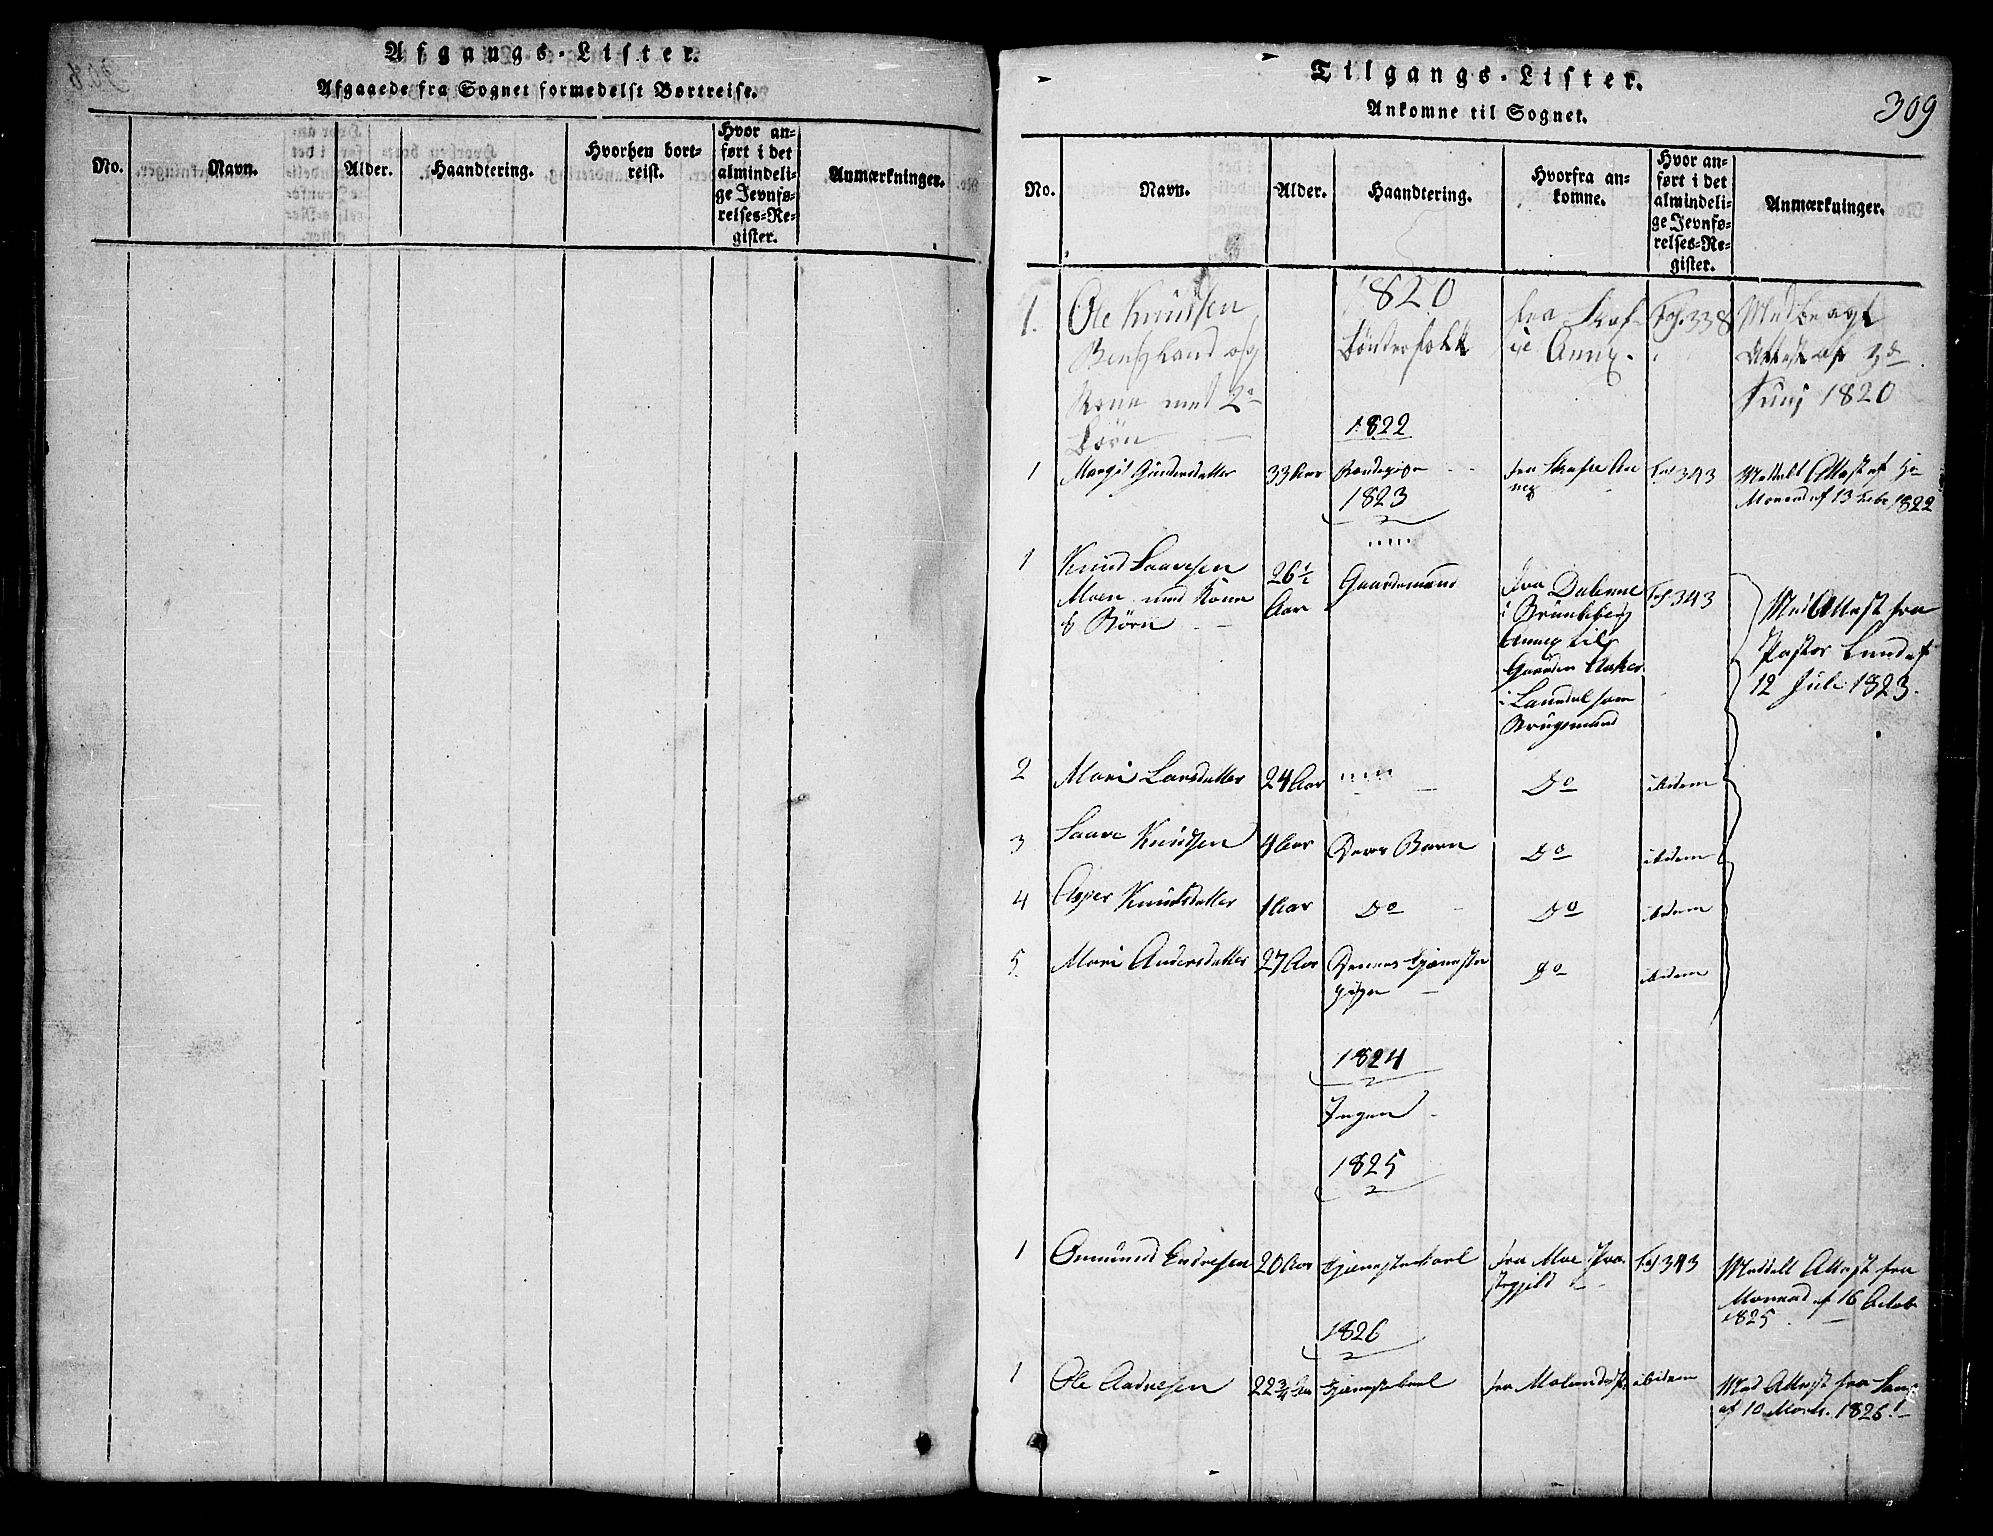 Afgangs-Lister.
Afgaaede fra Sognet formedelst Bortreise.
No.
Navn.
Alder.
Haandtering.
Hvorhen bort-
reist.
Hvor an-
ført i det
almindeli-
ge Jevnfø-
relses-Re-
gister.
Anmærkninger.
Tilgangs-Lister.
309
Ankomne til Sognet.
No.
Navn.
Alder.
Haandtering.
Hvorfra an-
komne.
Hvor an-
ført i det
almindeli-
ge Jevnfø-
relses-Re-
gister.
Anmærkninger.
1820
1.
Ole Knudsen
Bergland og
Kone med 2de
Børn
Bønderfolk
fra
Annex.
Fol. 338
Medbragt
Attest af 3de
Junj 1820
1822
1
Margit Gundersdatter
33 Aar
Bondepige
fra Skafse An
nex
Fol 343
Meddelt Attest af Hr
Monrad af 13 Febr 1822
1823
1
Knud Saavesen
Moen med Kone
& Børn
26½
Aar
Gaardmand
fra Dalene
i Brunkeberg
Annex til
Gaarden
i Laurdal som
Brugsmand
Fol 343
Med Attest fra
Pastor Lund af
12 Juli 1823.
2
Mari Larsdatter
24 Aar
Do
ibidem
3
Saave Knudsen
4 Aar
Deres Barn
Do
ibidem
4
Knudsdatter
1 Aar
Do
Do
ibidem
5
Mari Andersdatter
27 Aar
Deres Tjeneste
pige
Do
ibidem
1824
Ingen
1825
1
Omund Endresen
20 Aar
Tjenestekarl
fra Moe Præ
stegjeld
Fol 343
Meddelt Attest fra
Monrad af 16 Octob
1825
1826
1
Ole Andresen
22¾ Aar
Tjenestekarl
fra
ibidem
Med Attest fra
af 10 Marts 1826